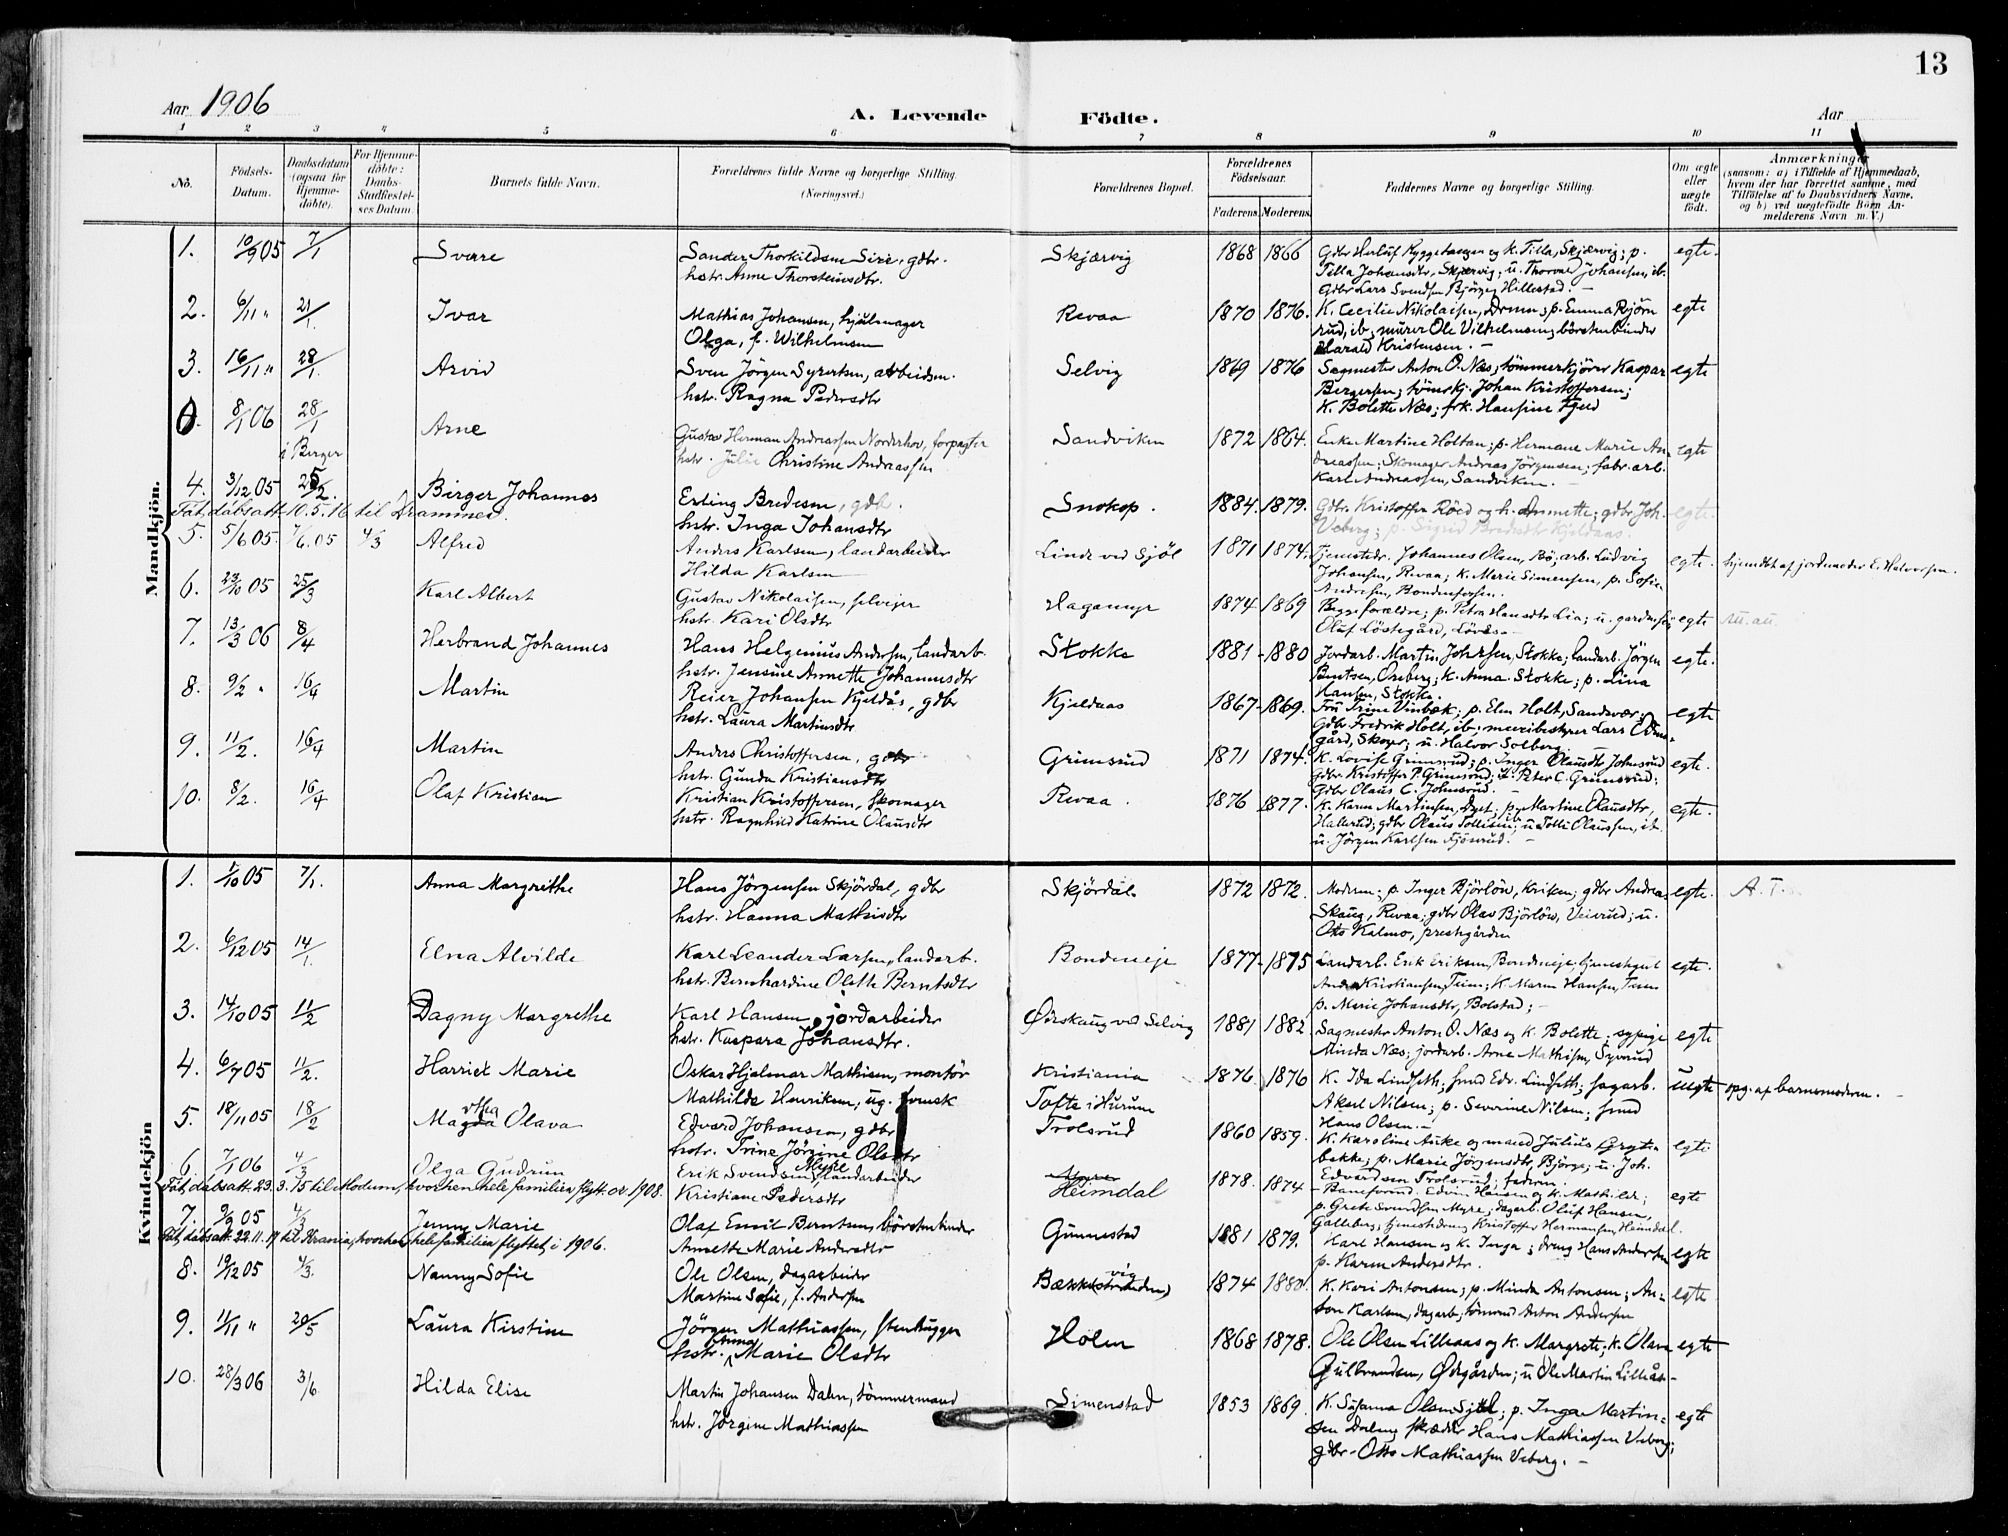 13
Aar 1906
A. Levende Födte.
Aar
1 2 3 4 5 6 7 8 9 10 11
No. Födsels-Datum. Daabsdatum (ogsaa for Hjemme-döbte). For Hjemme-döbte: Daabs-Stadfæstel-ses Datum. Barnets fulde Navn. Forældrenes fulde Navne og borgerlige Stilling. (Næringsvei.) Forældrenes Bopæl. Forældrenes Födselsaar. Faderens. Moderens. Faddernes Navne og borgerlige Stilling. Om ægte eller uægte födt. Anmærkninger (saasom: a) i Tilfælde af Hjemmedaab, hvem der har forrettet samme, med Tilföielse af to Daabsvidners Navne, og b) ved uægtefödte Börn An-melderens Navn m. V.)
Mandkjön.
1. 10/9 05 7/1 Sverre Sander Thorkildsen Sire, gdbr. Skjærvig 1868 1866 Gdbr Herluf Ryggetangen og k. Tilla, Skjærvig; p. egte.
hstr. Anne Thorsteinsdtr. Tilla Johansdtr, Skjærvig; u. Thorvald Johansen, ib.
Gdbr Lars Svendsen Bjørge, Hillestad. –
2. 6/11 " 21/1. Ivar Mathias Johansen, hjulmager Revaa 1870 1876. K. Cecilie Nikolaisen, Drmn; p. Emma Bjørn egte
Olga, f. Wilhelmsen rud, ib; murer Ole Vilhelmsen, börstenbinder
Harald Kristensen. –
3. 16/11 " 28/1. Arvid Sven Jörgen Syvertsen, arbeidsm. Selvig 1869 1876 Sagmester Anton O. Næs; tömmerkjörer Kaspar egte
hstr. Ragna Pedersdtr Bergersen; tömrkj. Johan Kristoffersen;
K. Bolette Næs; frk. Hansine Fjeld
0. 8/1 06 28/1 Arne Gustav Herman Andreassen Norderhov, forpagter Sandviken 1872 1864. Enke Martine Holtan; p. Hermane Marie An- egte
i Berger hstr. Julie Christine Andreassen dreassen; Skomager Andreas Jörgensen; fabr. arb.
Karl Andreassen, Sandviken. –
4. 3/12 05 25/2. Birger Johannes Erling Bredesen, gdb. Snekop. 1884. 1879. Gdbr. Kristoffer Röed og h. Annette; gdbr Joh. egte.
Fåt dåbsatt. 10.5.16 til Drammen. hstr. Inga Johansdtr Veberg; p. Sigrid Bredesdtr Kjeldaas.
5. 5/6 05. 7/6.05 4/3 Alfred Anders Karlsen, landarbeider Linde ved Sjöl 1871 1874. Tjenestedr. Johannes Olsen, Bö; arb. Ludvig egte. hjemdbt af jordmoder E. Halvorsen.
Hilda Karlsen Johansen, Revaa; k. Marie Simensen, p. Sofie
6. 29/10 05 25/3 Karl Albert Gustav Nikolaisen, selveier Hagamyr 1874 1869 Begge forældre; p. Petra Hansdtr Lia; u. egte
hstr. Kari Olsdtr Oluf Löstegård,
7. 13/3 06 8/4 Herbrand Johannes Hans Helgenius Andersen, landarb. Stokke 1881 – 1880 Jordarb. Martin Johnsen, Stokke; landarb. Jörgen egte.
hstr. Jensine Annette Johannesdtr Bentsen, Oreberg; k. Anna Stokke; p. Lina
8. 9/2 " 16/4 Martin Reier Johansen Kjeldås, gdbr Kjeldaas 1867 – 1869. Hansen, Stokke. egte
hstr. Laura Martinsdtr Fru Trine Vinbæk; p. Elen Holt, Sandsvær;
Gdbr. Fredrik Holt, ib; meieribestyrer Lars
9. 11/2. 16/4 Martin Anders Christoffersen, gdbr Grimsrud 1871 1874. gård, Skoger; u. Halvor Solberg. egte.
hstr. Gunda Kristiansdtr K. Lovise Grimsrud; p. Inger Olausdtr Johnsrud
gdbr. Kristoffer P. Grimsrud; u. Peter C. Grimsrud;
10. 8/2. 16/4 Olaf Kristian Kristian Kristoffersen, Skomager Revaa. 1876 1877. gdbr Olaus C. Johnsrud. – egte.
hstr. Ragnhild Katrine Olausdtr K. Karen Martinsen, p. Martine Olausdtr,
Hallerud; gdbr Olaus Tollisen; u. Tolli Olaussen, ib.
u. Jörgen Karlsen Fjösrud. –
Kvindekjön
1. 1/10 05 7/1. Anna Margrethe Hans Jörgensen Skjördal, gdbr Skjördal 1872 1872. Modrum; p. Inger Björlöw, Kriken; gdbr Andreas egte. A. T.
hstr. Hanna Mathisdtr Skaug, Revaa; gdbr Olav Björlöw, Veierud; u.
Otto Kalmo, prestgården
2. 6/12 05 14/1. Elna Alvilde Karl Leander Larsen, landarb. Bondeneje 1877 – 1875 Landarb. Erik Eriksen, Bondeneje; egte.
hstr. Bernhardine Olette Berntsdtr Kristiansen, Teien; K. Maren Hansen, Teien
p. Marie Johansdtr, Bolstad; –
3. 14/10 05 11/2 Dagny Margrethe Karl Hansen, jordarbeider Ödeskaug ved Selvig 1881 1882 Sagmester Anton O. Næs og k. Bolette; sypige egte
hstr. Kaspara Johansdtr. Minda Næs; jordarb. Arne Mathisen, Syverud
4. 6/7 05 11/2. Harriet Marie Oskar Hjelmar Mathisen, montör Kristiania 1876. 1876 K. Ida Lindseth; smed Edv. Lindseth; fagarb. uegte opg. af barnemoderen. –
Mathilde Henriksen, ug. svensk Tofte i Hurum Aksel Nilsen; p. Severine Nilsen; smed
5. 18/11 05 18/2 Magda othea Olava Edvard Johansen, gdbr Trolsrud 1860 1859. Hans Olsen. – egte
hstr. Trine Jörgine Olsdtr K. Karoline Aske og mand Julius Gryte-
bakke; p. Marie Jörgensdtr, Björge; u. Joh.
6. 7/1 06 4/3 Olga Gudrun Erik Svendsen Myre, landarbeider Myre Heimdal 1878. 1874 Edvardsen Trolsrud; faderen. egte
Fåt dåbsatt. 23.3.15 til Modum, hvorhen hele familien flytt. ca. 1908. Kristiane Pedersdtr Edvin Hansen og k. Mathilde;
p. Grete Svendsen Myre; dagarb. Oluf Hansen,
7. 9/9 05 4/3 Jenny Marie Olaf Emil Berntsen, börstenbinder Gunnestad 1881 1879. Galleberg; tjenestedreng Kristoffer Hermansen, Heimdal. egte
Fåt dåbsatt. 22.11.19 til Krania, hvorhen hele familien flyttet i 1906. Annette Marie Andersdtr Karl Hansen og k. Inga; dreng Hans Andersen
p. Karen Andersdtr.
8. 19/12 05 4/3. Nanny Sofie Ole Olsen, dagarbeider Bækkevig (stranden) 1874 1880. K. Kari Antonsen; p. Minda Antonsen; An- egte
Martine Sofie, f. Andersen ton Karlsen, dagarb; tömmerm. Anton Andersen
9. 11/11 " 20/5 Laura Kirstine Jörgen Mathiassen, stenhugger Holen 1868 1878. Ole Olsen Lilleaas og k. Margrete; k. Olava egte
hstr. Anna Marie Olsdtr Gulbrandsen, Ödegården; u Ole Martin Lilleås –
10. 28/3 06 3/6. Hilda Elise Martin Johansen Dalen, tömmermand Simenstad 1853 1869. K. Susanna Olsen Sjöl; p. Inga Martin- egte
hstr. Jörgine Mathiassen sen Dalen; skrædder Hans Mathiassen Veberg;
gdbr – Otto Mathiassen Veberg. –